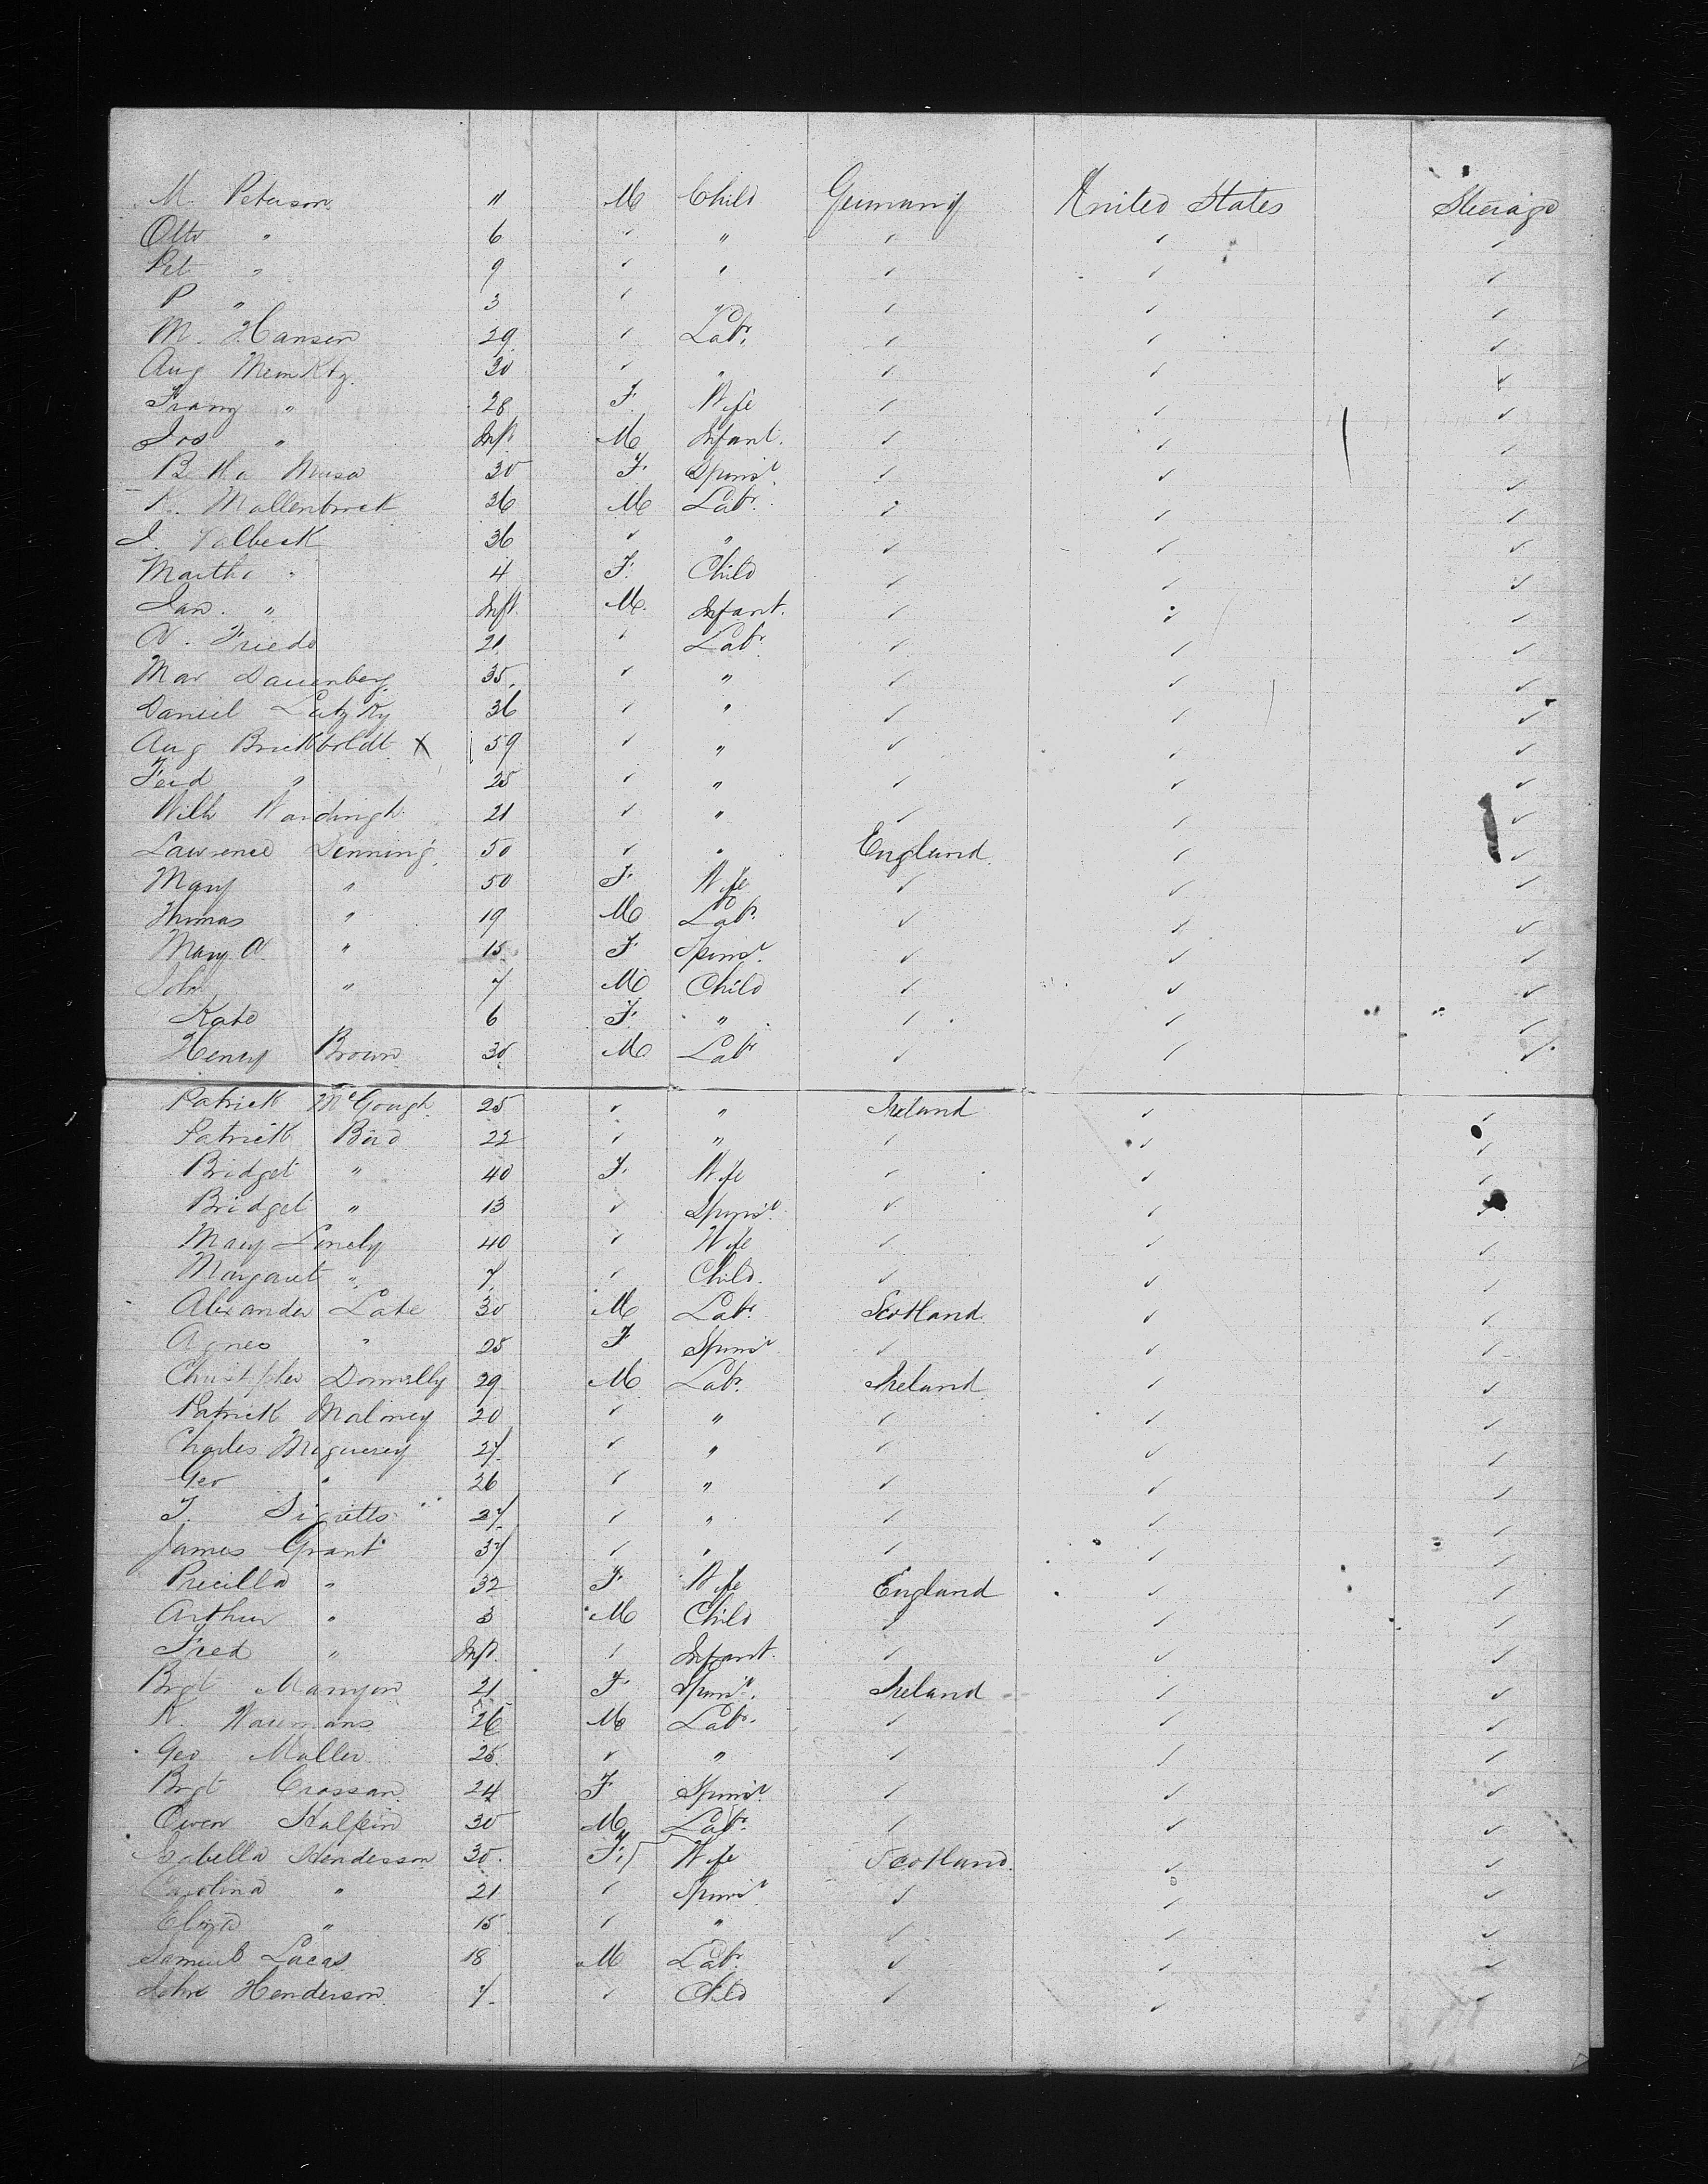 M. Peterson " M Child Germany United States Steerage
Otto " 6 ✓ " ✓ ✓ ✓
Pet " 9 ✓ " ✓ ✓ ✓
P " 3 ✓ " ✓ ✓ ✓
M. Hansen 29 ✓ Labr. ✓ ✓ ✓
Aug 30 ✓ " ✓ ✓ ✓
Franz " 28 F Wife ✓ ✓ ✓
Jos " Inft M Infant. ✓ ✓ ✓
30 F. Spinsr. ✓ ✓ ✓
K. Mallenbrock 36 M Labr. ✓ ✓ ✓
J. 36 ✓ " ✓ ✓ ✓
Martha " 4 F. Child ✓ ✓ ✓
Jan. " Inft. M. Infant. ✓ ✓ ✓
A. Friede 21 ✓ Labr ✓ ✓ ✓
Mar Dauenberg 35. ✓ " ✓ ✓ ✓
Daniel Latzky 36 ✓ " ✓ ✓ ✓
Aug Brickboldt X 59 ✓ " ✓ ✓ ✓
Ferd " 25 ✓ " ✓ ✓ ✓
Wilh 21 ✓ " ✓ ✓ ✓
Lawrence Denning 50 ✓ " England. ✓ ✓
Mary " 50 F Wife ✓ ✓ ✓
Thomas " 19 M Labr. ✓ ✓ ✓
Mary A. " 15 F Spinsr. ✓ ✓ ✓
John " 7 M Child ✓ ✓ ✓
Kate 6 F. " ✓ ✓ ✓
Henry Brown 30 M Labr ✓ ✓ ✓
Patrick McGough 25 ✓ " Ireland ✓ ✓
Patrick Bird 22 ✓ " ✓ ✓ ✓
Bridget " 40 F. Wife ✓ ✓ ✓
Bridget " 13 ✓ Spinsr. ✓ ✓ ✓
Mary 40 ✓ Wife ✓ ✓ ✓
Margaret " 7 ✓ Child. ✓ ✓ ✓
Alexander Late 30 M Labr. Scotland. ✓ ✓
Agnes " 25 F Spinsr ✓ ✓ ✓
Christopher Donnelly 29 M Labr. Ireland ✓ ✓
Patrick Maloney 20 ✓ " ✓ ✓ ✓
Charles 27 ✓ " ✓ ✓ ✓
Geo " 26 ✓ " ✓ ✓ ✓
T. 27 ✓ " ✓ ✓ ✓
James Grant 37 ✓ " ✓ ✓ ✓
Precilla " 32 F Wife England ✓ ✓
Arthur " 3 M Child ✓ ✓ ✓
Fred " Inft. ✓ Infant. ✓ ✓ ✓
Brgt Mannion 21 F Spinsr. Ireland ✓ ✓
K. 26 M Labr. ✓ ✓ ✓
Geo Muller 25 ✓ " ✓ ✓ ✓
Brgt Crossan 24 F Spinsr. ✓ ✓ ✓
Owen Halpin 30 M Labr. ✓ ✓ ✓
Isabella Henderson 30. F. Wife Scotland. ✓ ✓
Carolina " 21 ✓ Spinsr ✓ ✓ ✓
Eliza " 15 ✓ " ✓ ✓ ✓
Samuel Lucas 18 M Labr. ✓ ✓ ✓
John Henderson 7 ✓ Child ✓ ✓ ✓